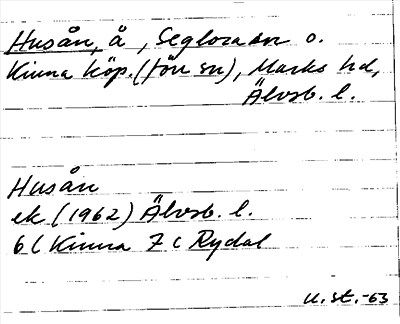 Husån, å, Seglora sn o.
Kinna köp. (förr sn), Marks hd,
Älvsb. l.
Husån
ek (1962) Älvsb. l.
6 C Kinna 7 C Rydal
u.st.-63